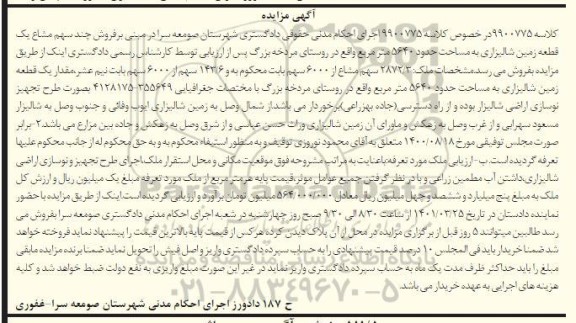 آگهی مزایده
کلاسه ۹۹۰۰۷۷۵در خصوص کلاسه ۹۹۰۰۷۷۵ اجرای احکام مدنی حقوقی دادگستری شهرستان صومعه سرا در مبنی برفروش چند سهم مشاع یک
قطعه زمین شالیزاری به مساحت حدود ۵۶۴۰ متر مربع واقع در روستای مردخه بزرگ پس از ارزیابی توسط کارشناس رسمی دادگستری اینک از طریق
مزایده بفروش می رسد.مشخصات ملک: ۲۸۷۲.۳ سهم مشاع از ۶۰۰۰ سهم بابت محکوم به و ۱۴۳.۶ سهم از ۶۰۰۰ سهم بابت نیم عشر مقدار یک قطعه
زمین شالیزاری به مساحت حدود ۵۶۴۰ متر مربع واقع در روستای مردخه بزرگ با مختصات جغرافیایی ۳۵۵۶۴۹-۴۱۲۸۱۷۵ بصورت طرح تجهیز
نوسازی اراضی شالیزار بوده و از راه دسترسی(جاده بهزراعی)برخوردار می باشد.از شمال وصل به زمین شالیزاری ایوب وفائی و جنوب وصل به شالیزار
مسعود سهرابی و از غرب وصل به زهکش و ماورای آن زمین شالیزاری وراث حسن عباسی و از شرق وصل به زهکش و جاده بین مزارع می باشد.۲-برابر
صورت مجلس توقیفی مورخ ۱۴۰۰/۰۸/۱۸ متعلق به آقای محمود نوروزی توقیف و به منظور استیفاء محکوم به و به حق محکوم له از جانب محکوم علیها
تعرفه گردیده است. ب- ارزیابی ملک مورد تعرفه:باعنایت به مراتب مشروحه فوق موقعیت مکانی و محل استقرار ملک.اجرای طرح تجهیز و نوسازی اراضی
شالیزاری،داشتن آب مطمئن زراعی و با در نظر گرفتن جمیع عوامل موثر،قیمت پایه هر متر مربع از ملک مورد تعرفه مبلغ یک میلیون ریال و ارزش کل
ملک به مبلغ پنج میلیارد و ششصد و چهل میلیون ریال معادل ۵۶۴/۰۰۰/۰۰۰ میلیون تومان برآورد و ارزیابی گردیده است.اینک از طریق مزایده با حضور
نماینده دادستان در تاریخ ۱۴۰۱/۰۳/۲۵ از ساعت ۸:۳۰ الی ۹:۳۰ صبح روز چهارشنبه در شعبه اجرای احکام مدنی دادگستری صومعه سرا بفروش می
رسد طالبین میتوانند ۵ روز قبل از برگزاری مزایده در محل از آن پلاک دیدن کرده هرکس از قیمت پایه بالاترین قیمت را پیشنهاد نماید فروخته خواهد
شد ضمنا خریدار باید فی المجلس ۱۰ درصد قیمت پیشنهادی را به حساب سپرده دادگستری واریز و اصل فیش را تحویل نماید ضمنا برنده مزایده مابقی
مبلغ را باید حداکثر ظرف مدت یک ماه به حساب سپرده دادگستری واریز نماید در غیر این صورت مبلغ واریزی به نفع دولت ضبط خواهد شد و کلیه
هزینه های اجرایی به عهده خریدار می باشد.
ح ۱۸۷ دادورز اجرای احکام مدنی شهرستان صومعه سرا- غفوری
۰۲۱-۸۸۳۴۹۶۷۰-۵